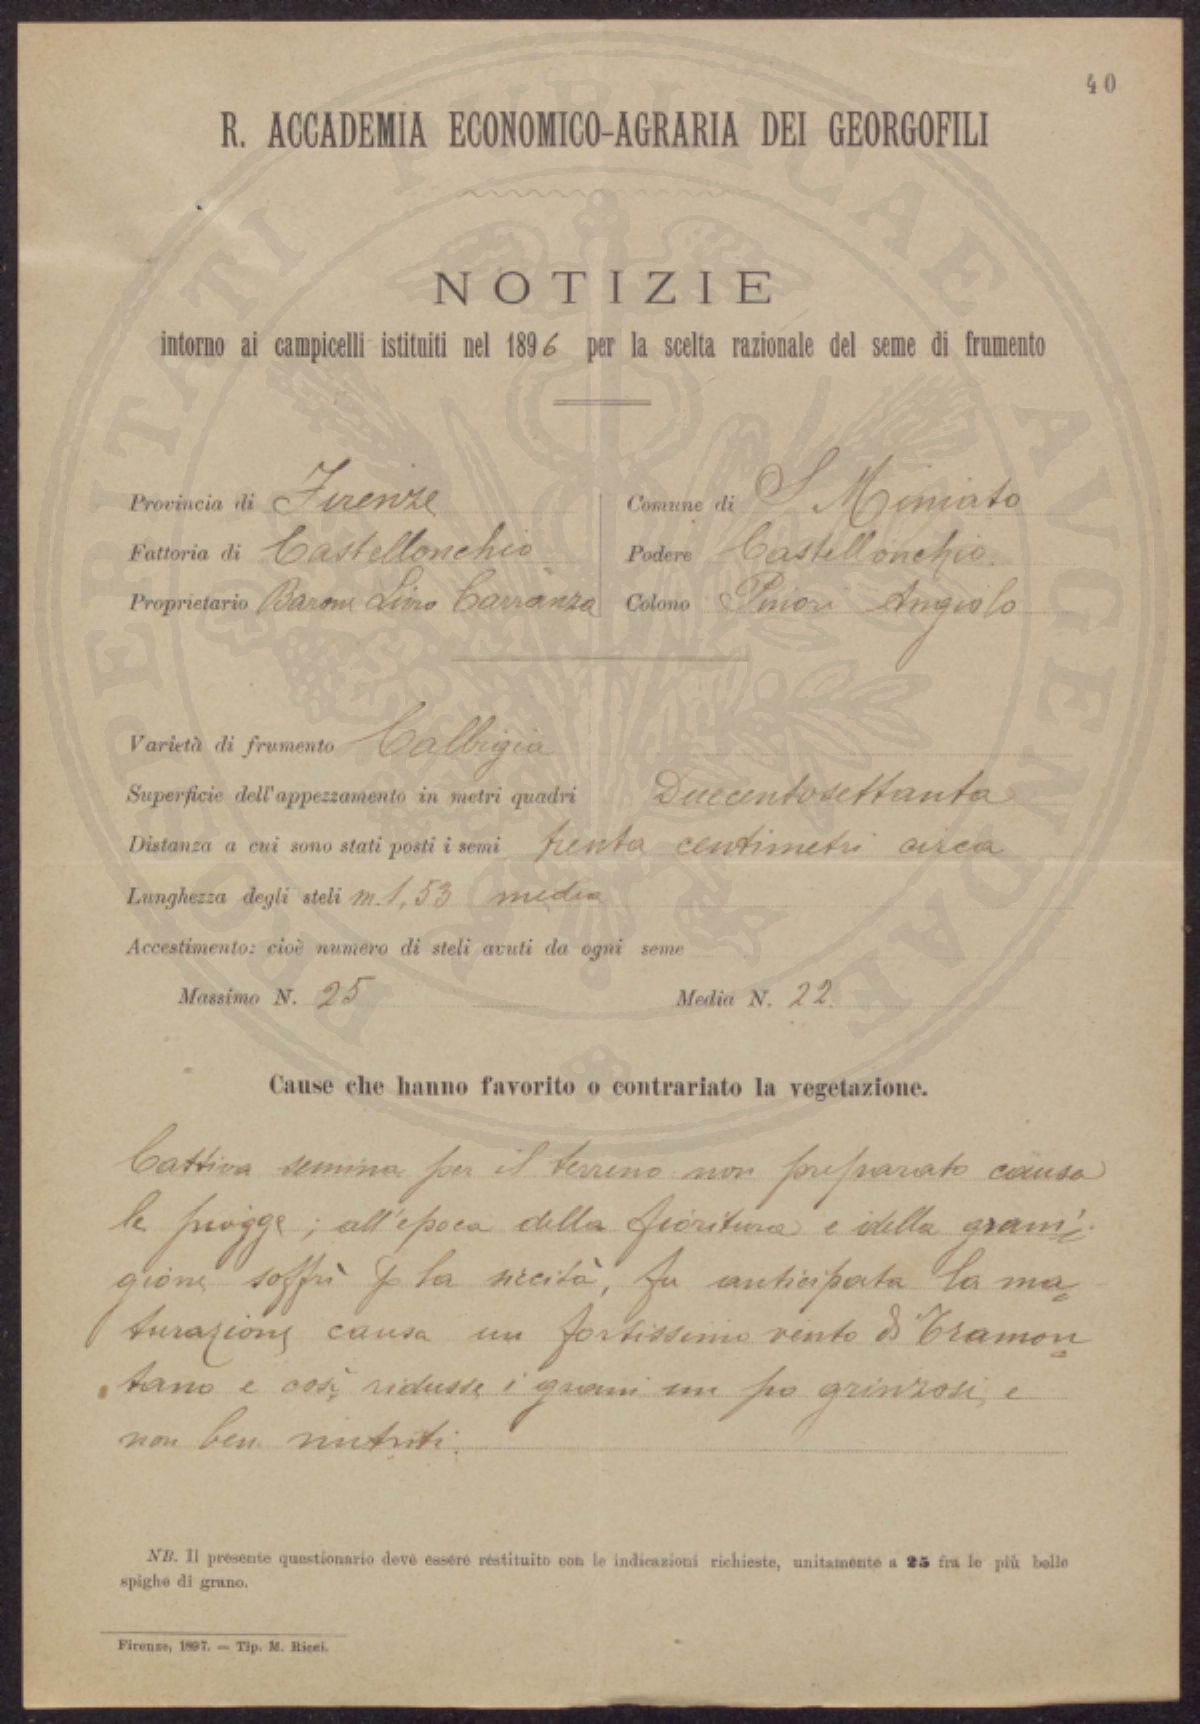 40
R. ACCADEMIA ECONOMICO-AGRARIA DEI GEORGOFILI
NOTIZIE
intorno ai campicelli istituiti nel 1896 per la scelta razionale del seme di frumento
Provincia di Firenze Comune di S Miniato
Fattoria di Castellonchio Podere Castellonchio
Proprietario Barone Livio Carranza Colono Priori Angiolo
Varietà di frumento Calbigia
Superficie dell'appezzamento in metri quadri Duecentosettanta
Distanza a cui sono stati posti i semi trenta centimetri circa
Lunghezza degli steli m. 1,53 media
Accestimento: cioè numero di steli avuti da ogni seme
Massimo N. 25 Media N. 22
Cause che hanno favorito o contrariato la vegetazione.
Cattiva semina per il terreno non preparato causa
le piogge; all'epoca della fioritura e della grani
gione soffrì la siccità, fu anticipata la ma
turazione causa un fortissimo vento di Tramon
tano e così ridusse i grani un po grinzosi, e
non ben nutriti.
NB. Il presente questionario deve essere restituito con le indicazioni richieste, unitamente a 25 fra le più belle
spighe di grano.
Firenze, 1897. — Tip. M. Ricci.
PROSPERITATI PUBLICAE AVGENDAE